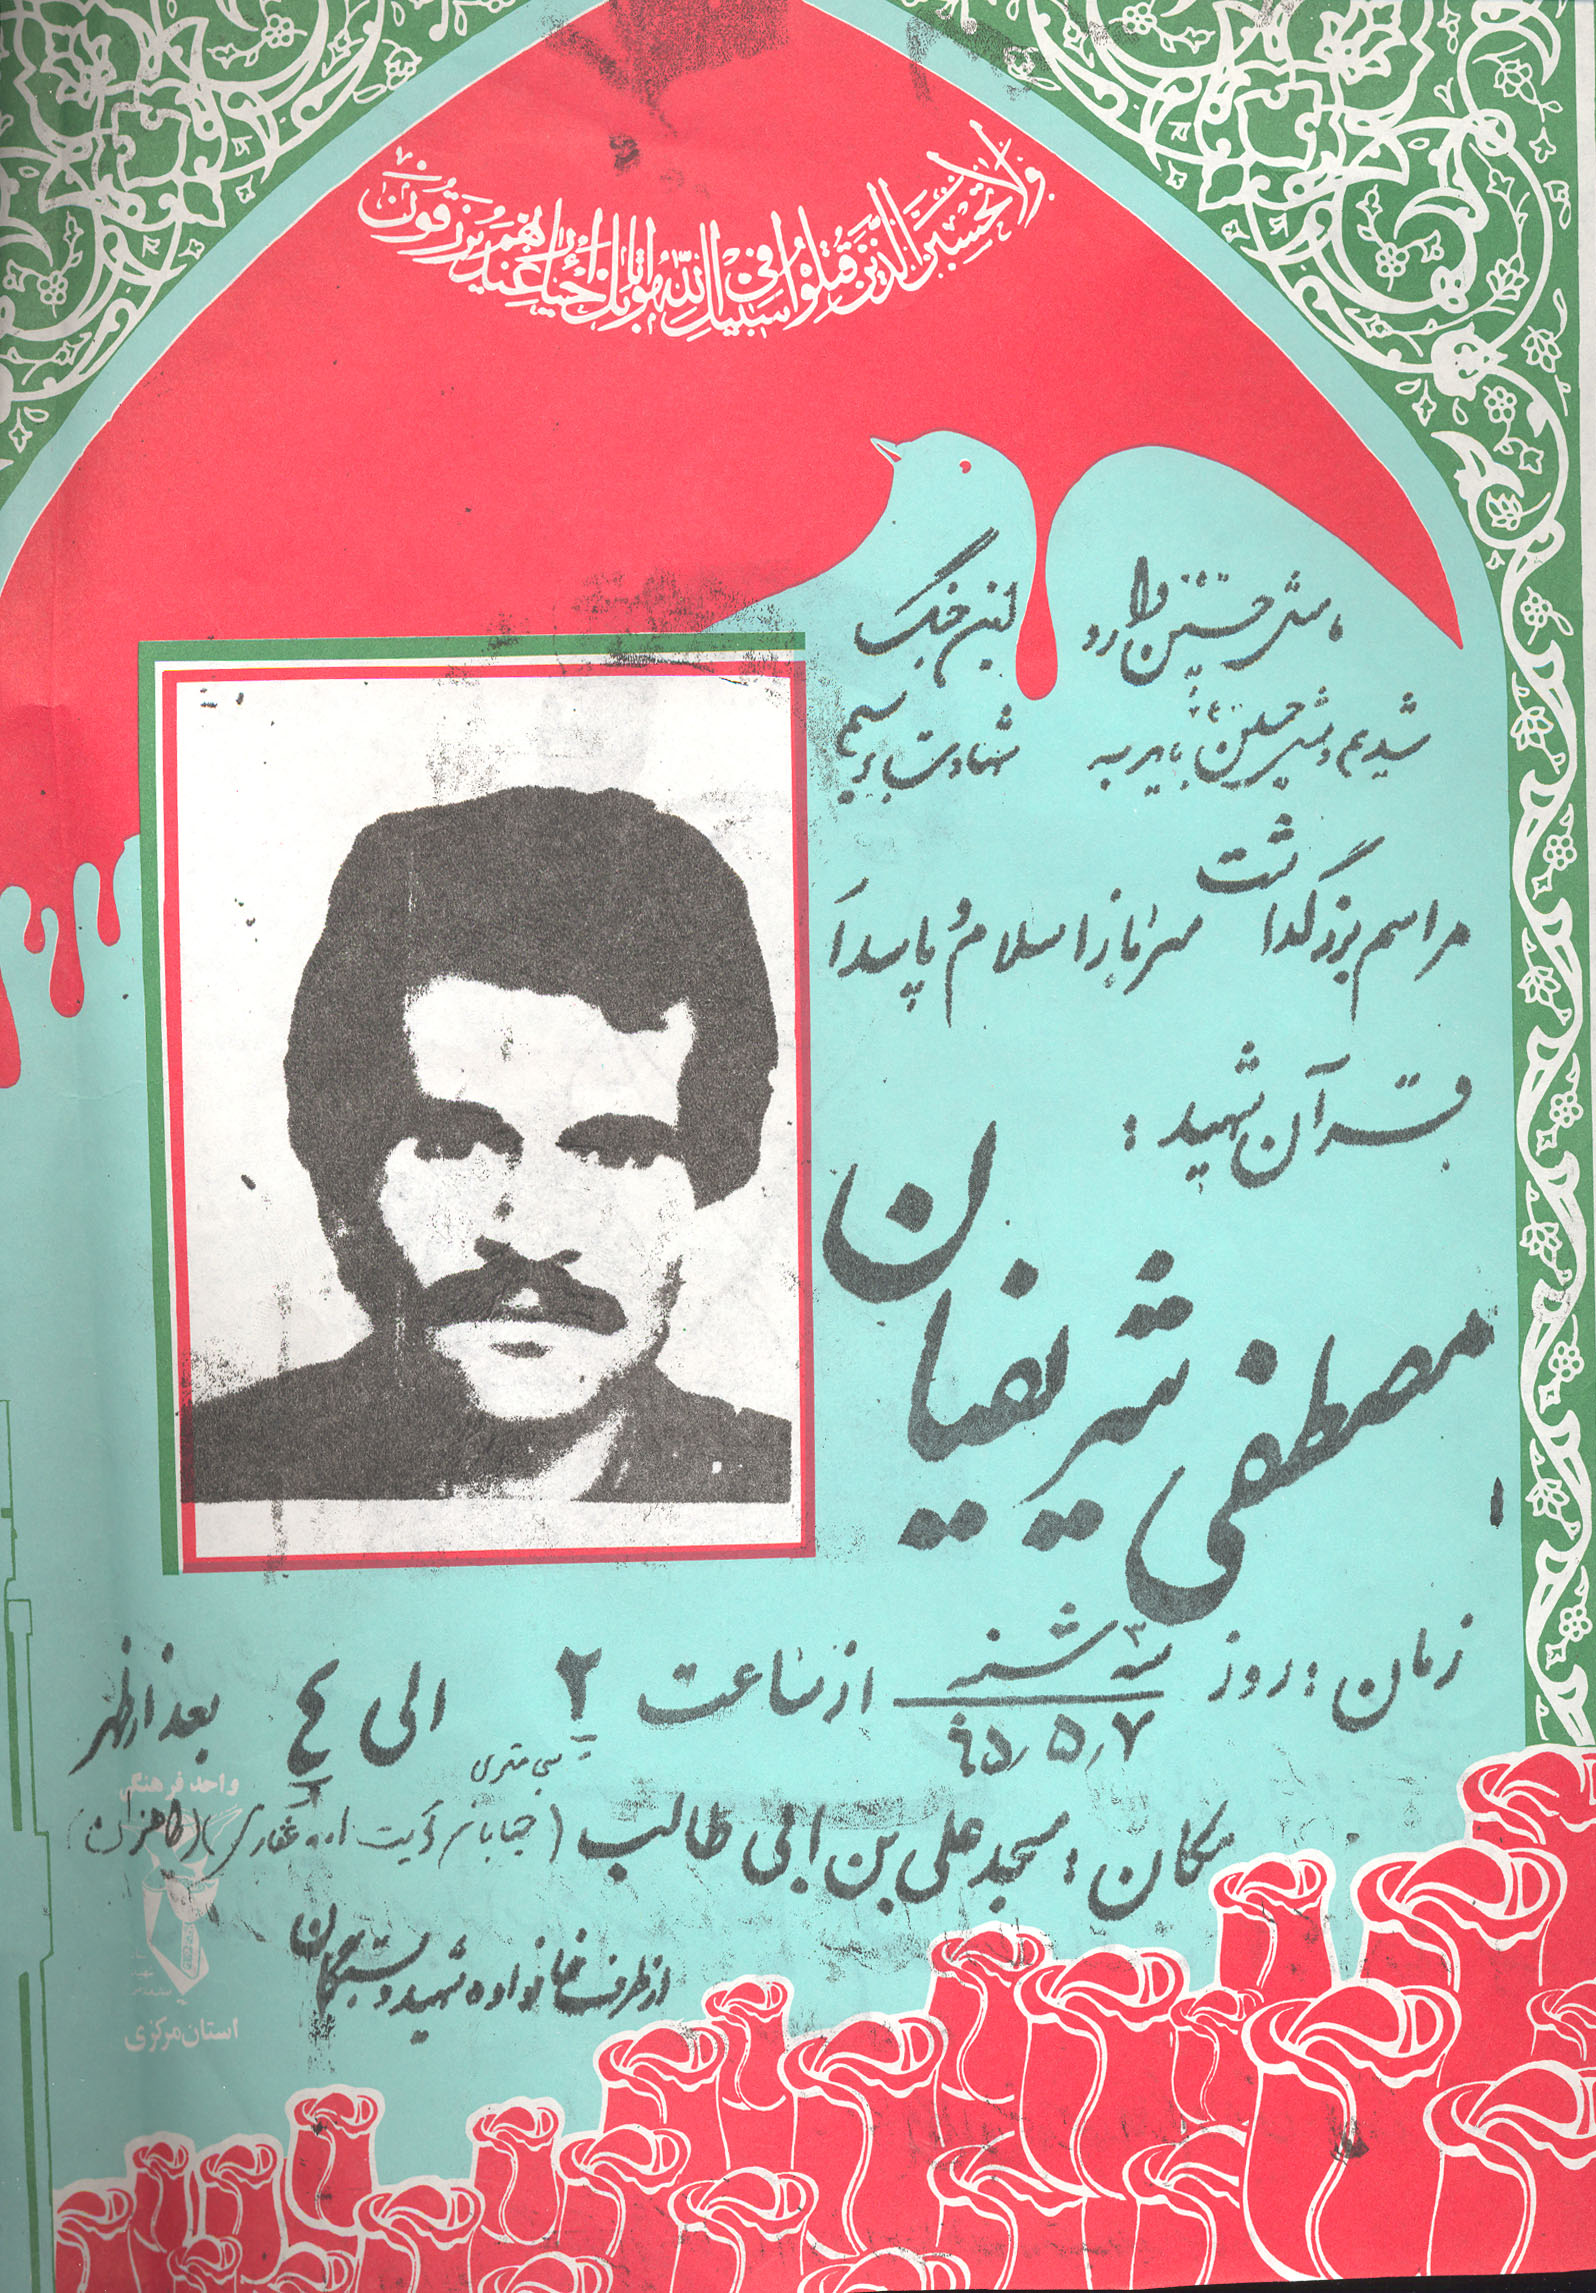 ولا تحسبن الذین قتلوا فی سبیل الله امواتا بل احیاء عند ربهم یرزقون
ما مثل حسین وارد این جنگ
شدیم و مثل حسین باید به شهادت برسیم
مراسم بزرگداشت سرباز اسلام و پاسدار
قرآن شهید :
مصطفی شریفیان
زمان : روز سه شنبه از ساعت ۲ الی ٤ بعد از ظهر
۶۵٫۵٫۷
سی متری
مکان : مسجد علی بن ابی طالب (خیابان آیت الله غفاری)
از طرف خانواده شهید و بستگان
واحد فرهنگی
استان مرکزی